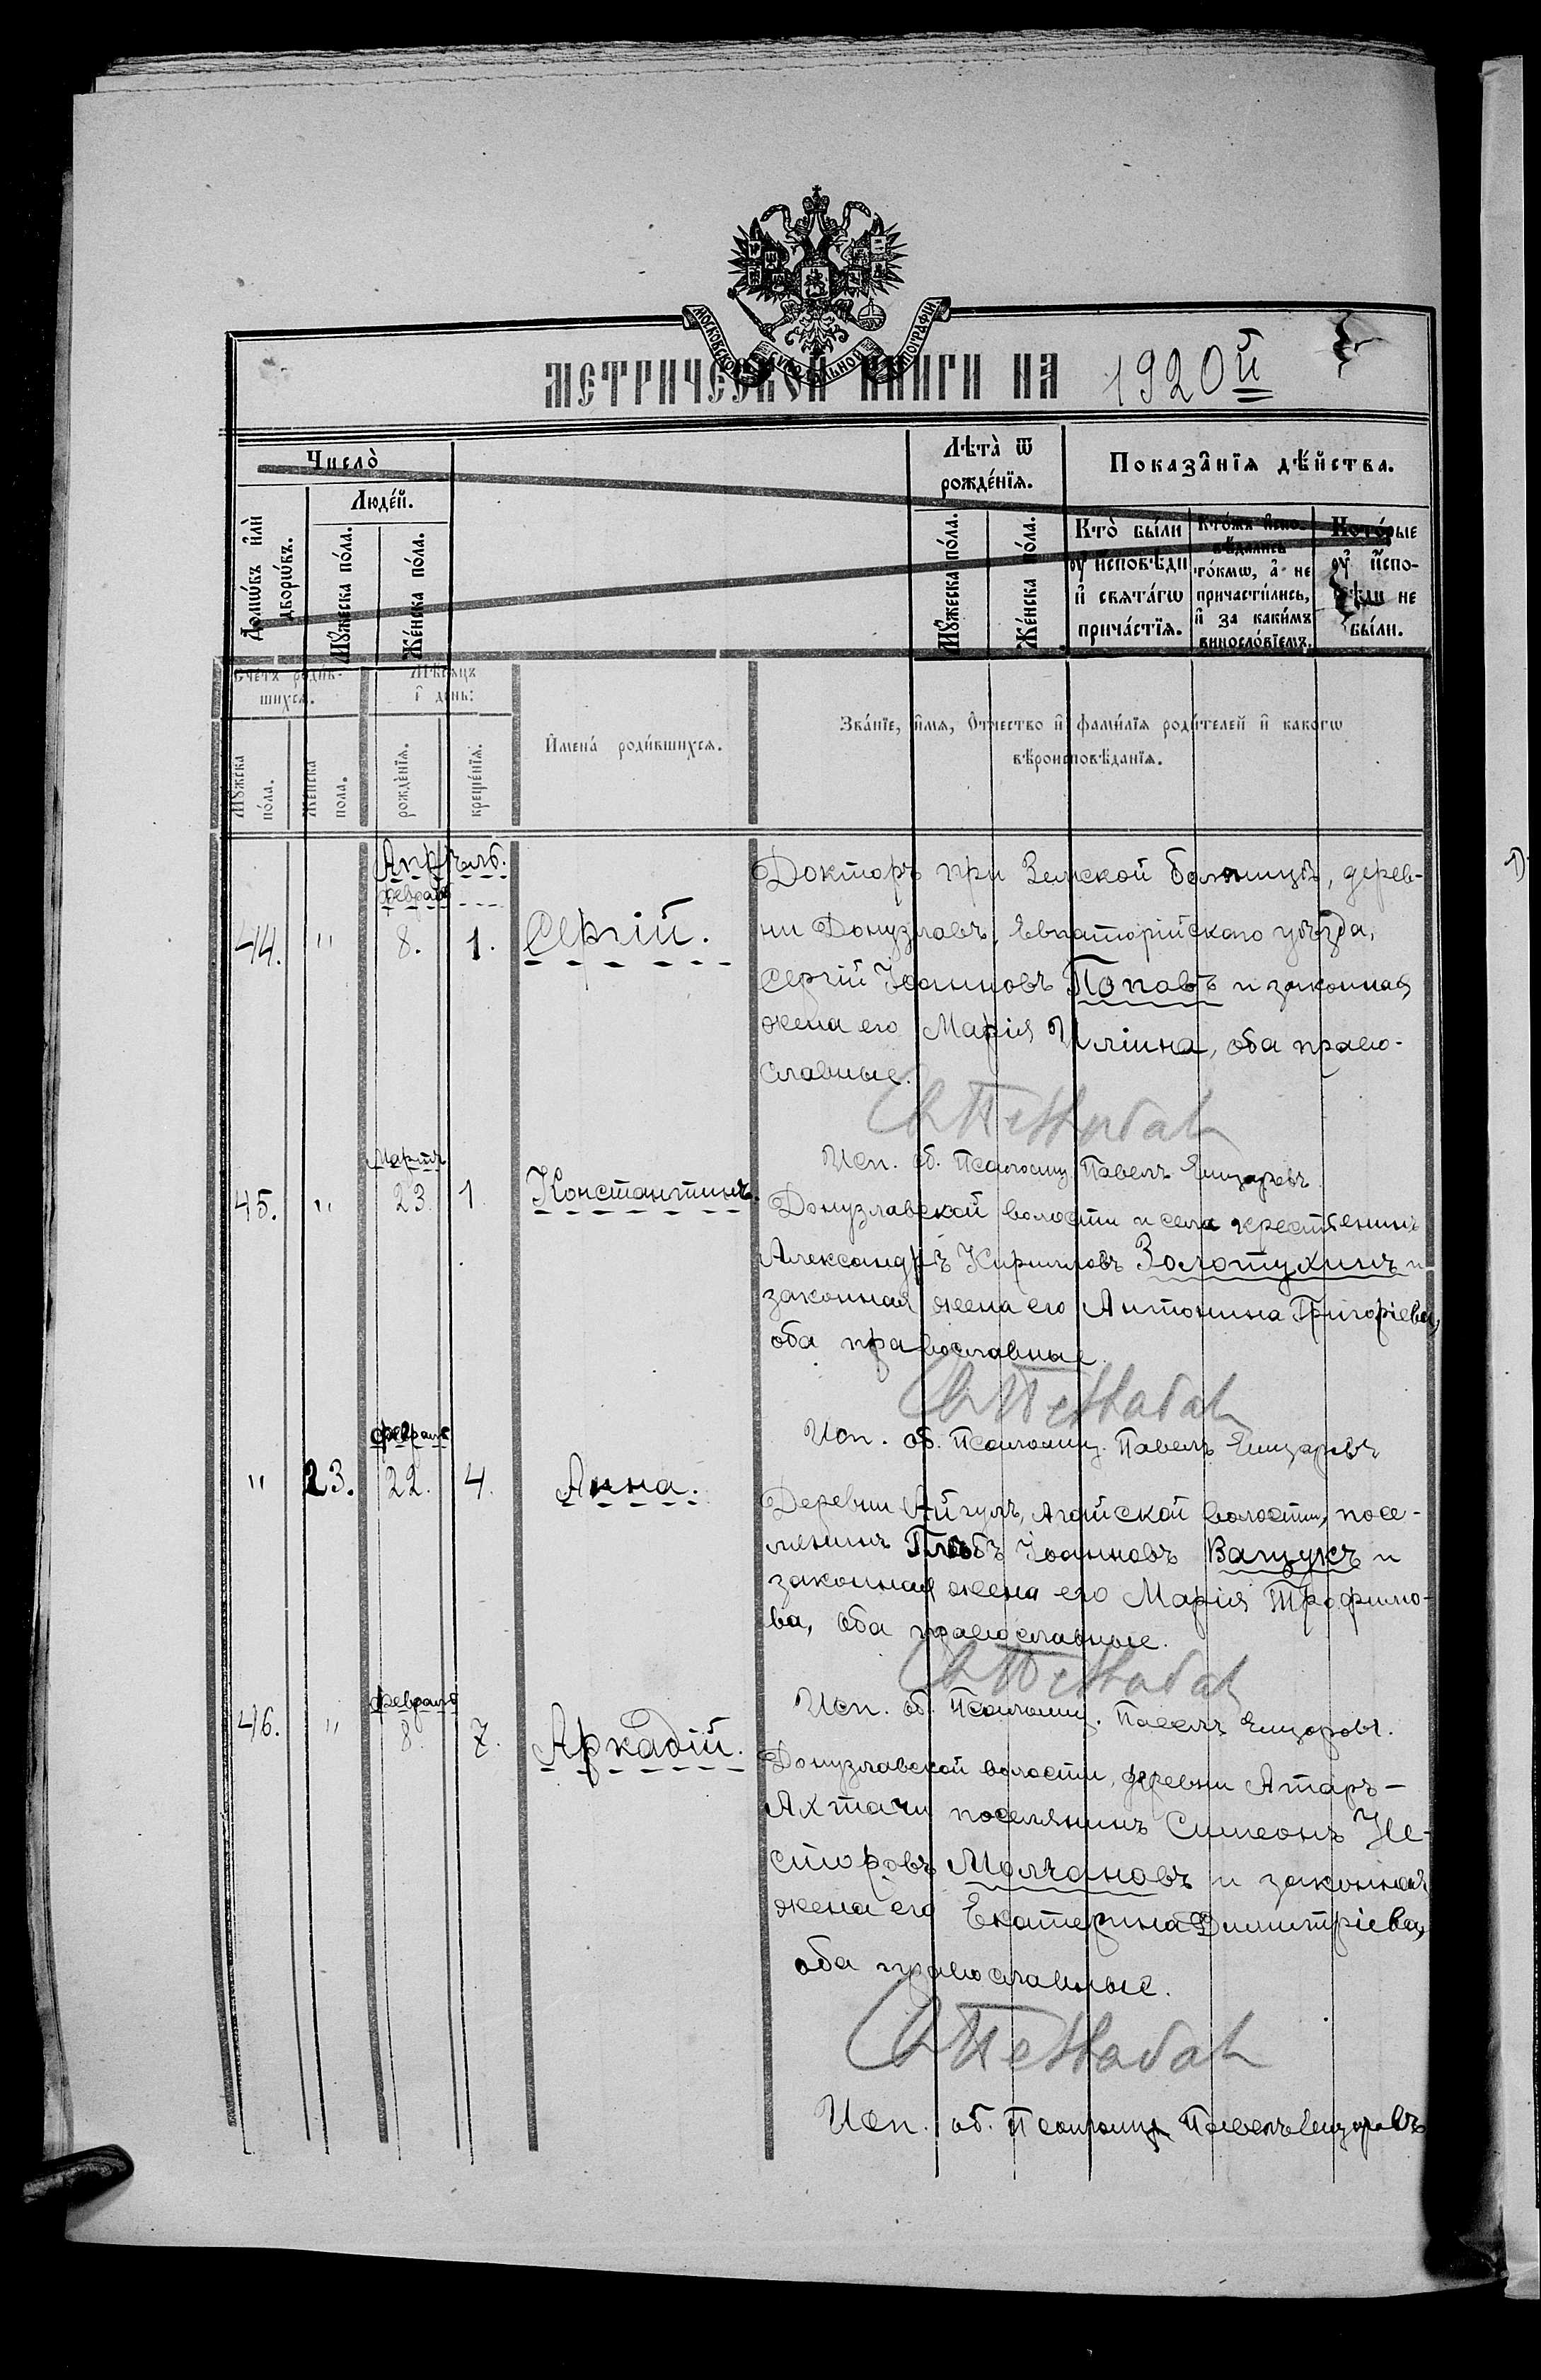 МОСКОВСКОЙ СѴНОДАЛЬНОЙ ТИПОГРАФІИ
МЕТРИЧЕСКОЙ КНИГИ НА 1920й
Число̀
Людéй.
Домѡ́въ и҆лѝ дворѡ́въ.
Мꙋ́жеска по́ла.
Же́нска по́ла.
Лѣ́та ѿ рожде́нїѧ.
Мꙋ́жеска по́ла.
Же́нска по́ла.
Показа̑нїѧ дѣ́йства.
Кто̀ бы́ли
ᲂу҆ и҆сповѣди
и҆ свята́гѡ
прича́стїѧ.
Кто́жъ и҆спо-
вѣдались
то́кмѡ, а҆ не
причасти́лись,
и҆ за каки́мъ
винослóвїемъ.
Кото́рые
ᲂу҆ и҆спо-
вѣди не
бы́ли.
Счетъ роди́в-
шихсѧ.
Мꙋ́жеска по́ла.
Же́нска пола.
Мѣ́сѧцъ
и҆ день:
рождéнїѧ.
крещéнїѧ.
И҆мена́ роди́вшихсѧ.
Зва́нїе, и҆́мѧ, О҆́тчество и҆ фами́лїѧ роди́телей и҆ како́гѡ
вѣроисповѣ́данїѧ.
Апрѣль.
февраль
44. " 8. 1. Сергій.
Докторъ при Земской больницѣ, дерев-
ни Донузлавъ, Евпаторійскаго уѣзда,
Сергій Іоанновъ Поповъ и законная
жена его Марія Иліина, оба право-
славные.
Исп. об. Псаломщ. Павелъ
Мартъ
45. " 23. 1. Константинъ.
Донузлавской волости и села крестьенинъ
Александръ Кирилловъ Золотухинъ и
законная жена его Антонина Григоріева,
оба православные.
Исп. об. Псаломщ. Павелъ
февраль
" 23. 22. 4. Анна.
Деревни Айгулъ, Агайской волости, посе-
ленинъ Глѣбъ Іоанновъ Ващукъ и
законная жена его Марія Трофимо-
ва, оба православные.
Исп. об. Псаломщ. Павелъ
февраль
46. " 8. 7. Аркадій.
Донузлавской волости, деревни Атаръ-
Ахтачи поселянинъ Симеонъ Не-
сторовъ Молчановъ и законная
жена его Екатерина Димитріева,
оба православные.
Исп. об. Псаломщ Павелъ